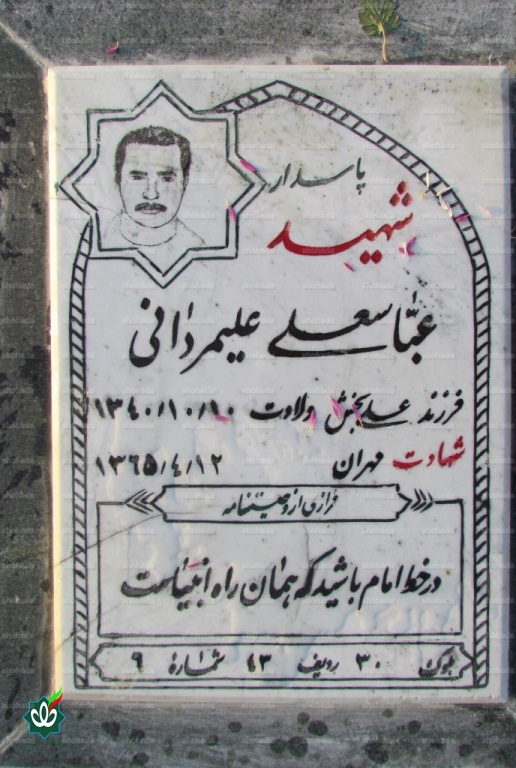 پاسدار
شهید
عباسعلی علیمردانی
فرزند علی‌بخش ولادت ۱۳۴۰/۱۰/۱۰
شهادت مهران ۱۳۶۵/۴/۱۲
فرازی از وصیتنامه
در خط امام باشید که همان راه انبیاست
بلوک ۳۰ ردیف ۴۳ شمارهٔ ۹